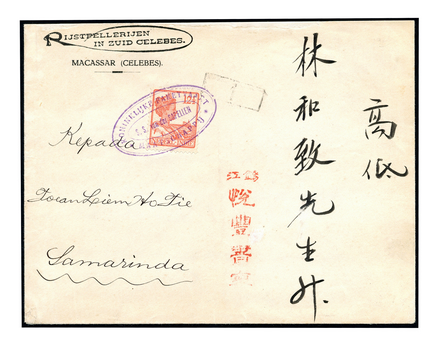 RIJSTPELLERIJEN
IN ZUID CELEBES.
MACASSAR (CELEBES).
12½
Kepada
Toean Liem Ho Tie
Samarinda
高低
林和致先生升
悅豐書室